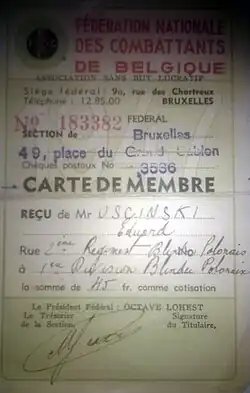 FÉDÉRATION NATIONALE
DES COMBATTANTS
DE BELGIQUE
ASSOCIATION SANS BUT LUCRATIF
Siège fédéral: 9a, rue des Chartreux
Téléphone: 12.85.00 BRUXELLES
No 183382 FEDERAL
SECTION de Bruxelles
49, place du Grand Sablon
Chèques postaux No 3536
CARTE DE MEMBRE
REÇU de Mr USCINSKI
Edward
Rue 2ème Regiment Blindé Polonais
à 1re Division Blindée Polonaise
la somme de 45 fr. comme cotisation
Le Président Fédéral: OCTAVE LOHEST
Le Trésorier Signature
de la Section, du Titulaire,